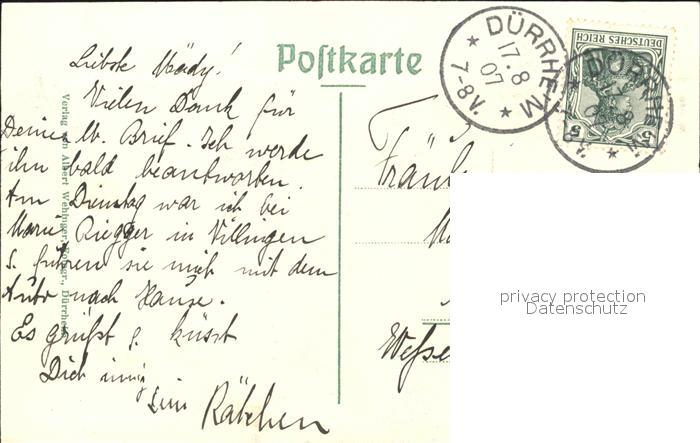 Postkarte
Liebste Mädy!
Vielen Dank für
Deinen lb. Brief. Ich werde
ihn bald beantworten.
Am Dienstag war ich bei
Marie Riegger in Villingen
u. fuhren sie mich mit dem
Auto nach Hause.
Es grüßt u. küsst
Dich innig
Dein Kätchen
Verlag von Albert Wehinger, Dürrheim
DÜRRHEIM
17.8
07
7-8V.
DEUTSCHES REICH
5 5
DÜRRHEIM
Fräul
privacy protection
Datenschutz